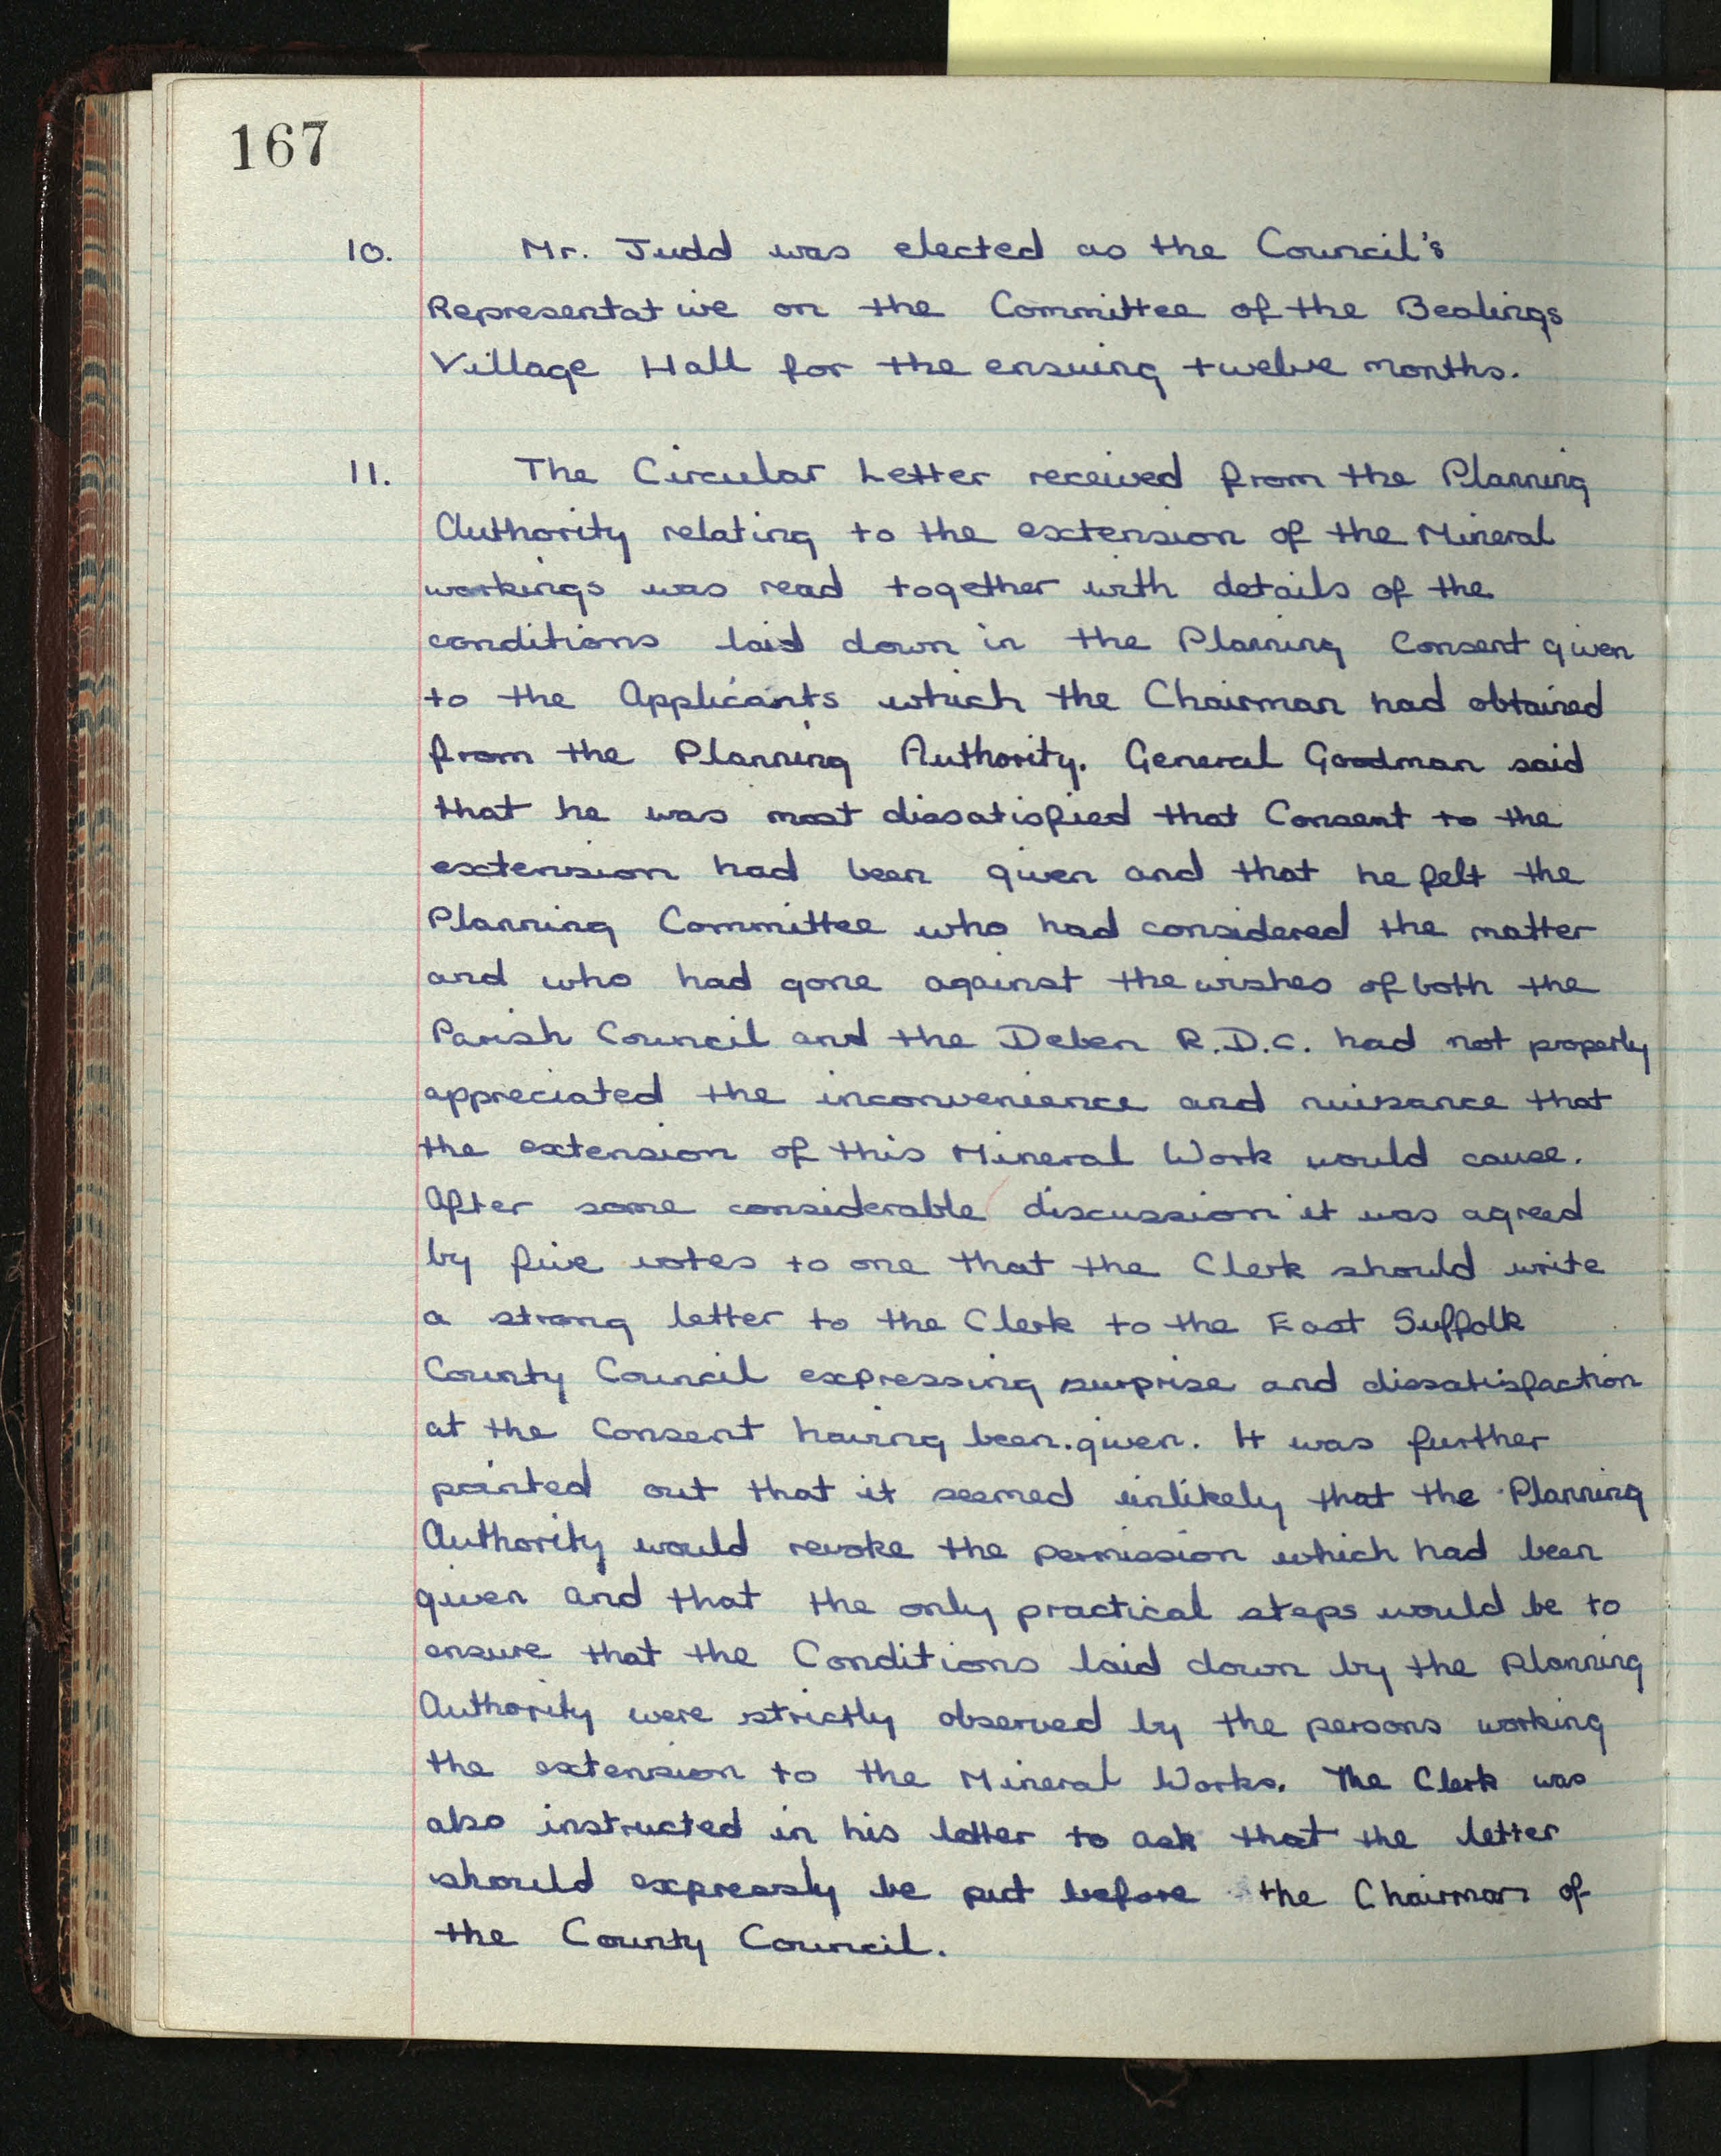 167
10. Mr. Judd was elected as the Council's
Representative on the Committee of the Bealings
Village Hall for the ensuing twelve months.
11. The Circular Letter received from the Planning
Authority relating to the extension of the Mineral
workings was read together with details of the
conditions laid down in the Planning Consent given
to the Applicants which the Chairman had obtained
from the Planning Authority. General Goodman said
that he was most dissatisfied that Consent to the
extension had been given and that he felt the
Planning Committee who had considered the matter
and who had gone against the wishes of both the
Parish Council and the Deben R.D.C. had not properly
appreciated the inconvenience and nuisance that
the extension of this Mineral Work would cause.
After some considerable discussion it was agreed
by five votes to one that the Clerk should write
a strong letter to the Clerk to the East Suffolk
County Council expressing surprise and dissatisfaction
at the Consent having been.given. It was further
pointed out that it seemed unlikely that the Planning
Authority would revoke the permission which had been
given and that the only practical steps would be to
ensure that the Conditions laid down by the Planning
Authority were strictly observed by the persons working
the extension to the Mineral Works. The Clerk was
also instructed in his letter to ask that the letter
should expressly be put before the Chairman of
the County Council.